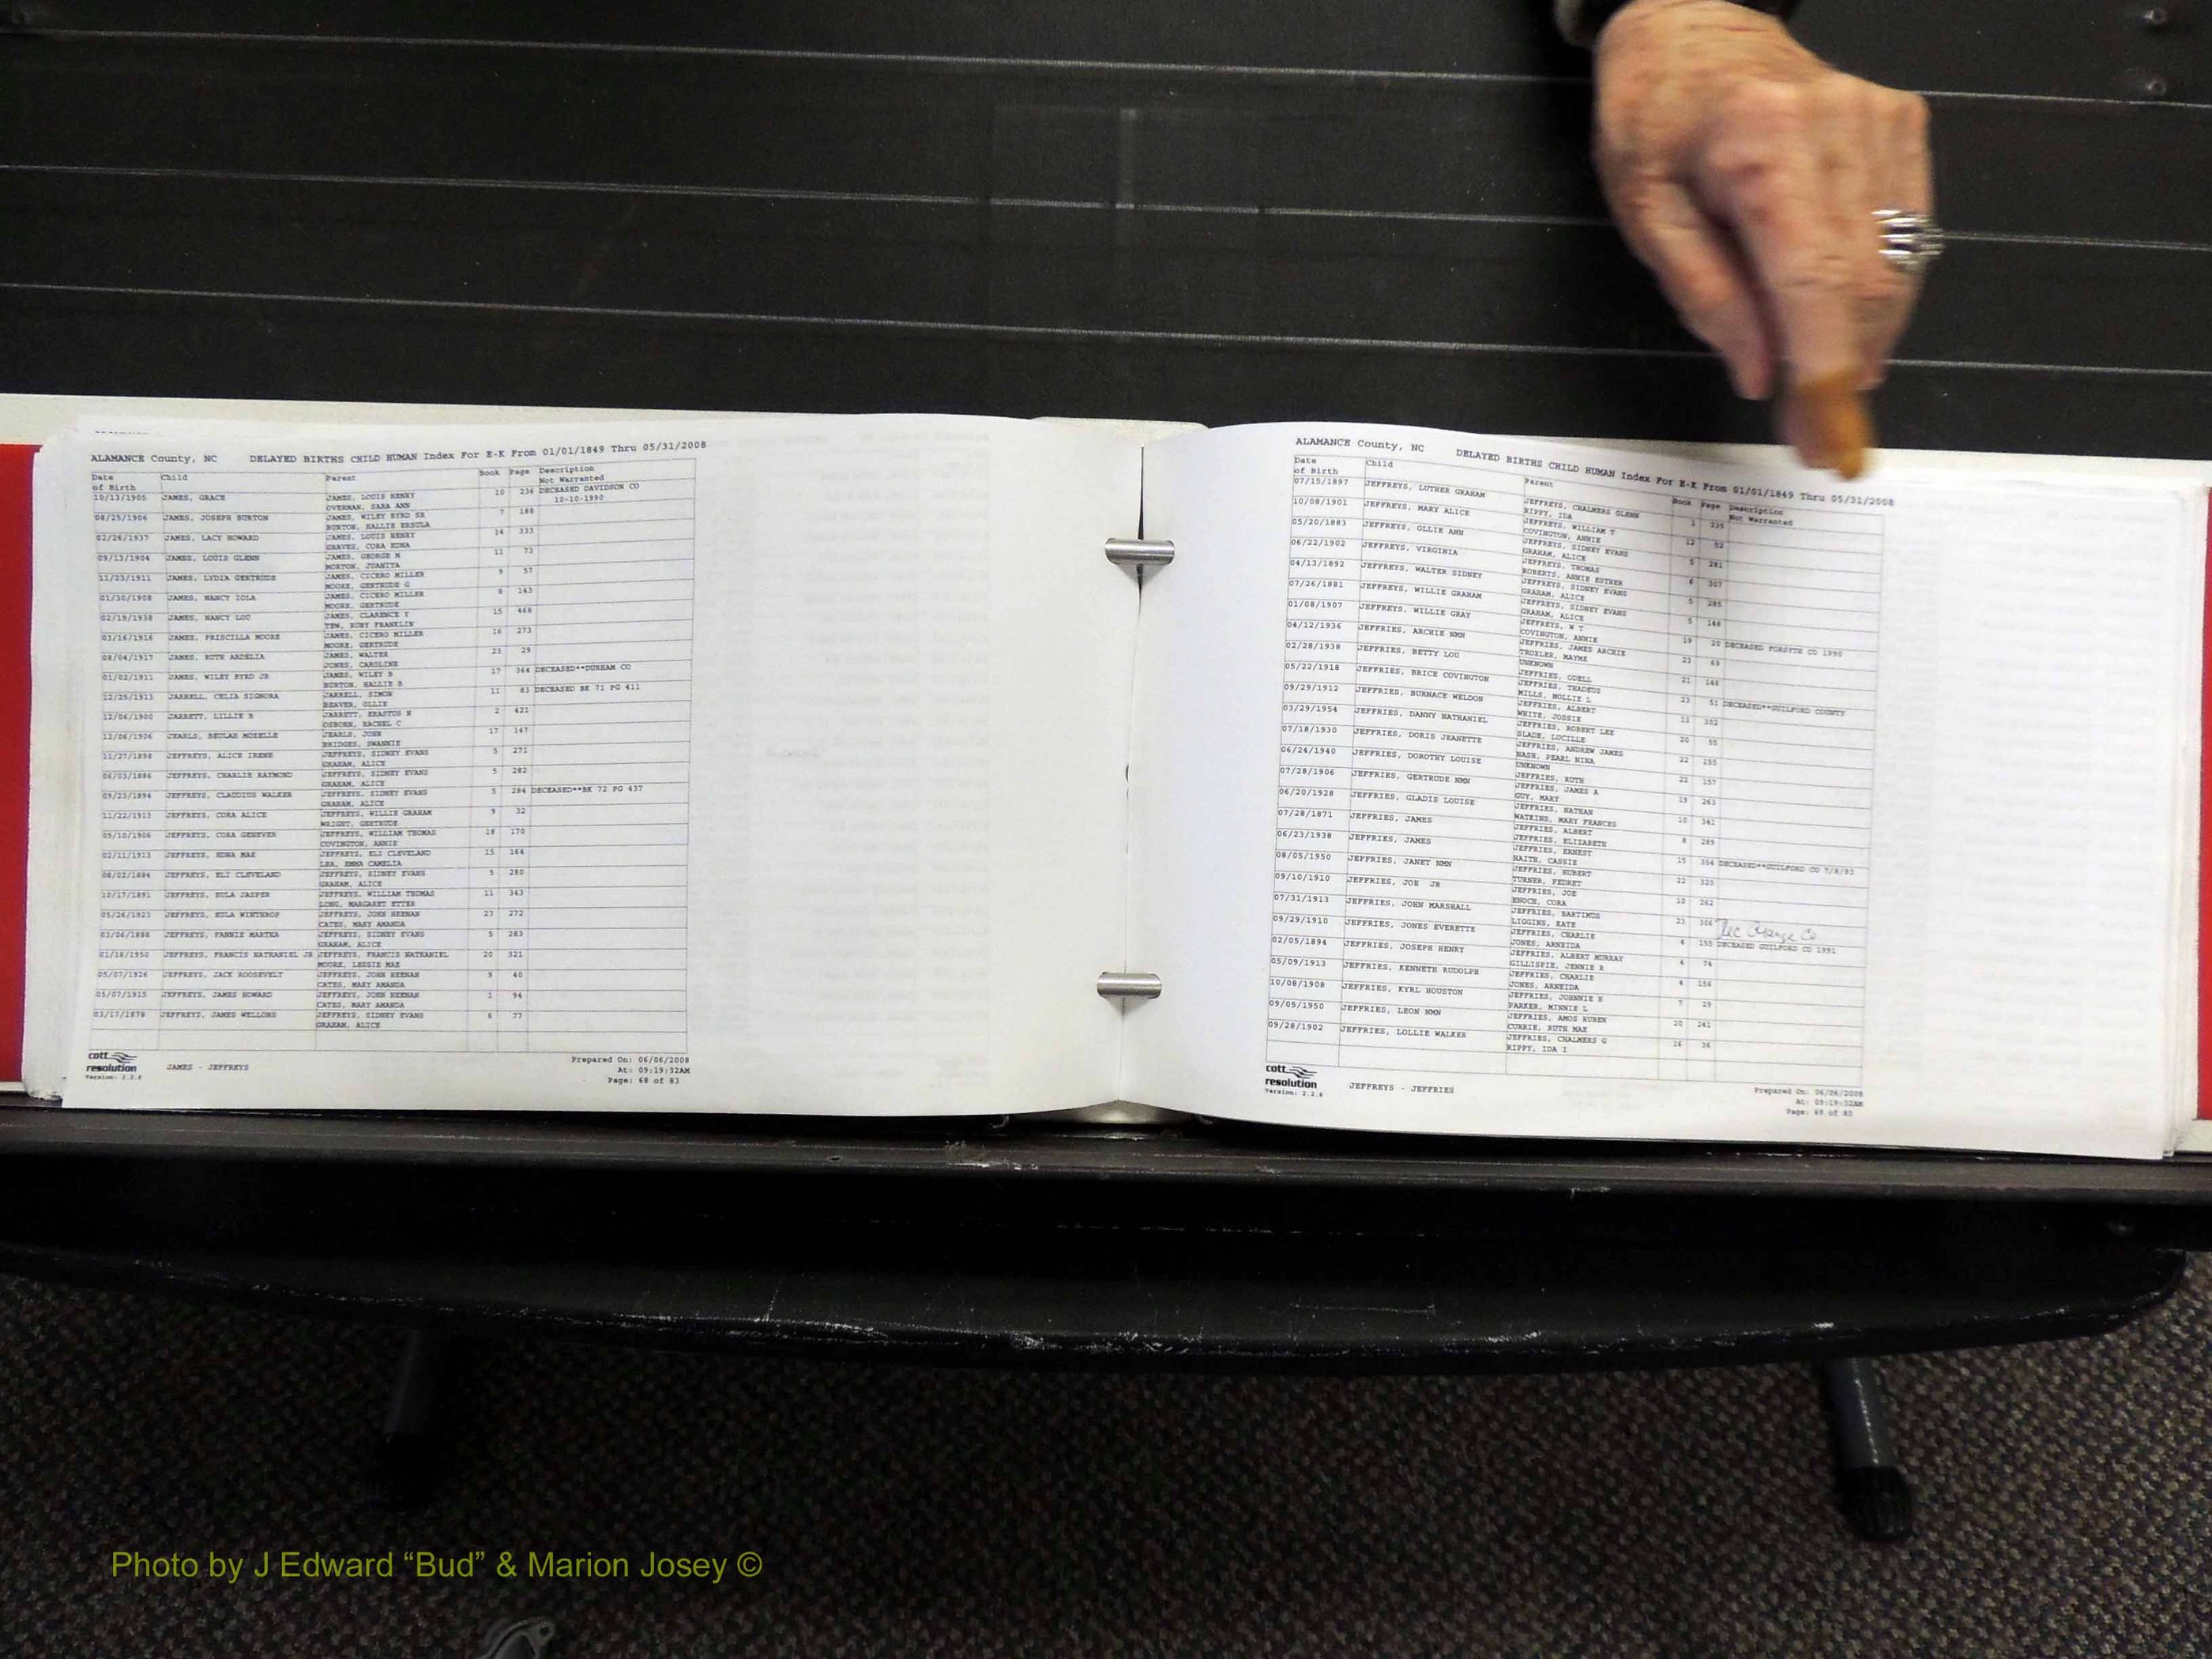 ALAMANCE County, NC DELAYED BIRTHS CHILD HUMAN Index For E-K From 01/01/1849 Thru 05/31/2008
Date of Birth Child Parent Book Page Description Not Warranted
10/13/1905 JAMES, GRACE JAMES, LOUIS HENRY 10 236 DECEASED DAVIDSON CO
OVERMAN, SARA ANN 10-10-1990
08/25/1906 JAMES, JOSEPH BURTON JAMES, WILEY BYRD SR 7 188
BURTON, HALLIE ERSULA
02/26/1937 JAMES, LACY HOWARD JAMES, LOUIS HENRY 14 333
GRAVES, CORA EDNA
09/13/1904 JAMES, LOUIS GLENN JAMES, GEORGE M 11 73
MORTON, JUANITA
11/23/1911 JAMES, LYDIA GERTRUDE JAMES, CICERO MILLER 9 57
MOORE, GERTRUDE G
01/30/1908 JAMES, NANCY IOLA JAMES, CICERO MILLER 8 143
MOORE, GERTRUDE
02/19/1938 JAMES, NANCY LOU JAMES, CLARENCE Y 15 468
TEW, RUBY FRANKLIN
03/16/1916 JAMES, PRISCILLA MOORE JAMES, CICERO MILLER 16 273
MOORE, GERTRUDE
08/04/1917 JAMES, RUTH ARDELIA JAMES, WALTER 23 29
JONES, CAROLINE
01/02/1911 JAMES, WILEY BYRD JR JAMES, WILEY B 17 364 DECEASED**DURHAM CO
BURTON, HALLIE B
12/25/1913 JARRELL, CELIA SIGNORA JARRELL, SIMON 11 83 DECEASED BK 71 PG 411
BEAVER, OLLIE
12/06/1900 JARRETT, LILLIE B JARRETT, ERASTUS H 2 421
OSBORN, RACHEL C
12/06/1906 JEARLS, BEULAH MOZELLE JEARLS, JOHN 17 147
BRIDGES, SWANNIE
11/27/1898 JEFFREYS, ALICE IRENE JEFFREYS, SIDNEY EVANS 5 271
GRAHAM, ALICE
06/03/1886 JEFFREYS, CHARLIE RAYMOND JEFFREYS, SIDNEY EVANS 5 282
GRAHAM, ALICE
09/23/1894 JEFFREYS, CLAUDIUS WALKER JEFFREYS, SIDNEY EVANS 5 284 DECEASED**BK 72 PG 437
GRAHAM, ALICE
11/22/1913 JEFFREYS, CORA ALICE JEFFREYS, WILLIE GRAHAM 9 32
WRIGHT, GERTRUDE
05/10/1906 JEFFREYS, CORA GENEVER JEFFREYS, WILLIAM THOMAS 18 170
COVINGTON, ANNIE
02/11/1913 JEFFREYS, EDNA MAE JEFFREYS, ELI CLEVELAND 15 164
LEA, EMMA CAMELIA
08/02/1884 JEFFREYS, ELI CLEVELAND JEFFREYS, SIDNEY EVANS 5 280
GRAHAM, ALICE
10/17/1891 JEFFREYS, EULA JASPER JEFFREYS, WILLIAM THOMAS 11 343
LONG, MARGARET ETTER
05/26/1923 JEFFREYS, EULA WINTHROP JEFFREYS, JOHN HEENAN 23 272
CATES, MARY AMANDA
03/06/1888 JEFFREYS, FANNIE MARTHA JEFFREYS, SIDNEY EVANS 5 283
GRAHAM, ALICE
01/16/1950 JEFFREYS, FRANCIS NATHANIEL JR JEFFREYS, FRANCIS NATHANIEL 20 321
MOORE, LESSIE MAE
05/07/1926 JEFFREYS, JACK ROOSEVELT JEFFREYS, JOHN HEENAN 9 40
CATES, MARY AMANDA
05/07/1915 JEFFREYS, JAMES HOWARD JEFFREYS, JOHN HEENAN 1 94
CATES, MARY AMANDA
03/17/1878 JEFFREYS, JAMES WELLONS JEFFREYS, SIDNEY EVANS 6 77
GRAHAM, ALICE
cott
resolution
Version: 2.2.6
JAMES - JEFFREYS
Prepared On: 06/06/2008
At: 09:19:32AM
Page: 68 of 83
ALAMANCE County, NC DELAYED BIRTHS CHILD HUMAN Index For E-K From 01/01/1849 Thru 05/31/2008
Date of Birth Child Parent Book Page Description Not Warranted
07/15/1897 JEFFREYS, LUTHER GRAHAM JEFFREYS, CHALMERS GLENN 1 335
RIPPY, IDA
10/08/1901 JEFFREYS, MARY ALICE JEFFREYS, WILLIAM T 12 52
COVINGTON, ANNIE
05/20/1883 JEFFREYS, OLLIE ANN JEFFREYS, SIDNEY EVANS 5 281
GRAHAM, ALICE
06/22/1902 JEFFREYS, VIRGINIA JEFFREYS, THOMAS 4 307
ROBERTS, ANNIE ESTHER
04/13/1892 JEFFREYS, WALTER SIDNEY JEFFREYS, SIDNEY EVANS 5 285
GRAHAM, ALICE
07/26/1881 JEFFREYS, WILLIE GRAHAM JEFFREYS, SIDNEY EVANS 5 148
GRAHAM, ALICE
01/08/1907 JEFFREYS, WILLIE GRAY JEFFREYS, W T 19 20 DECEASED FORSYTH CO 1995
COVINGTON, ANNIE
04/12/1936 JEFFRIES, ARCHIE NMN JEFFRIES, JAMES ARCHIE 23 69
TROXLER, MAYME
02/28/1938 JEFFRIES, BETTY LOU UNKNOWN 21 146
JEFFRIES, ODELL
05/22/1918 JEFFRIES, BRICE COVINGTON JEFFRIES, THADEUS 23 51 DECEASED**GUILFORD COUNTY
MILLS, MOLLIE L
09/29/1912 JEFFRIES, BURNACE WELDON JEFFRIES, ALBERT 13 302
WHITE, JOSSIE
03/29/1954 JEFFRIES, DANNY NATHANIEL JEFFRIES, ROBERT LEE 20 55
SLADE, LUCILLE
07/18/1930 JEFFRIES, DORIS JEANETTE JEFFRIES, ANDREW JAMES 22 155
NASH, PEARL NINA
06/24/1940 JEFFRIES, DOROTHY LOUISE UNKNOWN 22 157
JEFFRIES, RUTH
07/28/1906 JEFFRIES, GERTRUDE NMN JEFFRIES, JAMES A 19 263
GUY, MARY
06/20/1928 JEFFRIES, GLADIS LOUISE JEFFRIES, NATHAN 10 341
WATKINS, MARY FRANCES
07/28/1871 JEFFRIES, JAMES JEFFRIES, ALBERT 8 289
JEFFRIES, ELIZABETH
06/23/1938 JEFFRIES, JAMES JEFFRIES, ERNEST 15 354 DECEASED**GUILFORD CO 7/8/93
HAITH, CASSIE
08/05/1950 JEFFRIES, JANET NMN JEFFRIES, HUBERT 22 323
TURNER, FEDRET
09/10/1910 JEFFRIES, JOE JR JEFFRIES, JOE 10 262
ENOCH, CORA
07/31/1913 JEFFRIES, JOHN MARSHALL JEFFRIES, BARTIMUS 23 306 Dec Orange Co
LIGGINS, KATE
09/29/1910 JEFFRIES, JONES EVERETTE JEFFRIES, CHARLIE 4 155 DECEASED GUILFORD CO 1991
JONES, ARNEIDA
02/05/1894 JEFFRIES, JOSEPH HENRY JEFFRIES, ALBERT MURRAY 4 74
GILLISPIE, JENNIE R
05/09/1913 JEFFRIES, KENNETH RUDOLPH JEFFRIES, CHARLIE 4 156
JONES, ARNEIDA
10/08/1908 JEFFRIES, KYRL HOUSTON JEFFRIES, JOHNNIE H 7 29
PARKER, MINNIE L
09/05/1950 JEFFRIES, LEON NMN JEFFRIES, AMOS RUBEN 20 241
CURRIE, RUTH MAE
09/28/1902 JEFFRIES, LOLLIE WALKER JEFFRIES, CHALMERS G 16 36
RIPPY, IDA I
cott
resolution
Version: 2.2.6
JEFFREYS - JEFFRIES
Prepared On: 06/06/2008
At: 09:19:32AM
Page: 69 of 83
Photo by J Edward “Bud” & Marion Josey ©